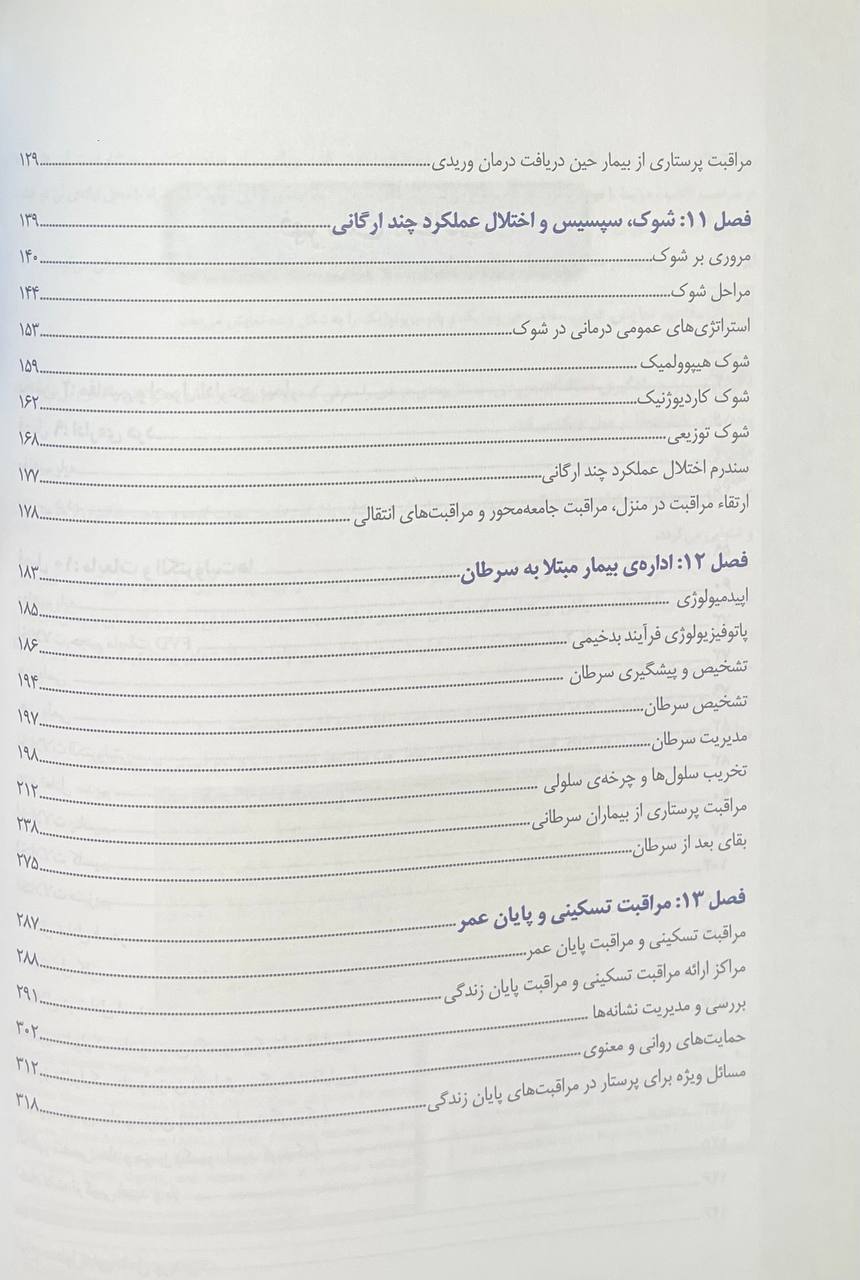 مراقبت پرستاری از بیمار حین دریافت درمان وریدی ۱۲۹
فصل ۱۱: شوک، سپسیس و اختلال عملکرد چند ارگانی ۱۳۹
مروری بر شوک ۱۴۰
مراحل شوک ۱۴۴
استراتژی‌های عمومی درمانی در شوک ۱۵۳
شوک هیپوولمیک ۱۵۹
شوک کاردیوژنیک ۱۶۲
شوک توزیعی ۱۶۸
سندرم اختلال عملکرد چند ارگانی ۱۷۷
ارتقاء مراقبت در منزل، مراقبت جامعه‌محور و مراقبت‌های انتقالی ۱۷۸
فصل ۱۲: اداره‌ی بیمار مبتلا به سرطان ۱۸۳
اپیدمیولوژی ۱۸۵
پاتوفیزیولوژی فرآیند بدخیمی ۱۸۶
تشخیص و پیشگیری سرطان ۱۹۴
تشخیص سرطان ۱۹۷
مدیریت سرطان ۱۹۸
تخریب سلول‌ها و چرخه‌ی سلولی ۲۱۲
مراقبت پرستاری از بیماران سرطانی ۲۳۸
بقای بعد از سرطان ۲۷۵
فصل ۱۳: مراقبت تسکینی و پایان عمر ۲۸۷
مراقبت تسکینی و مراقبت پایان عمر ۲۸۸
مراکز ارائه مراقبت تسکینی و مراقبت پایان زندگی ۲۹۱
بررسی و مدیریت نشانه‌ها ۳۰۲
حمایت‌های روانی و معنوی ۳۱۲
مسائل ویژه برای پرستار در مراقبت‌های پایان زندگی ۳۱۸